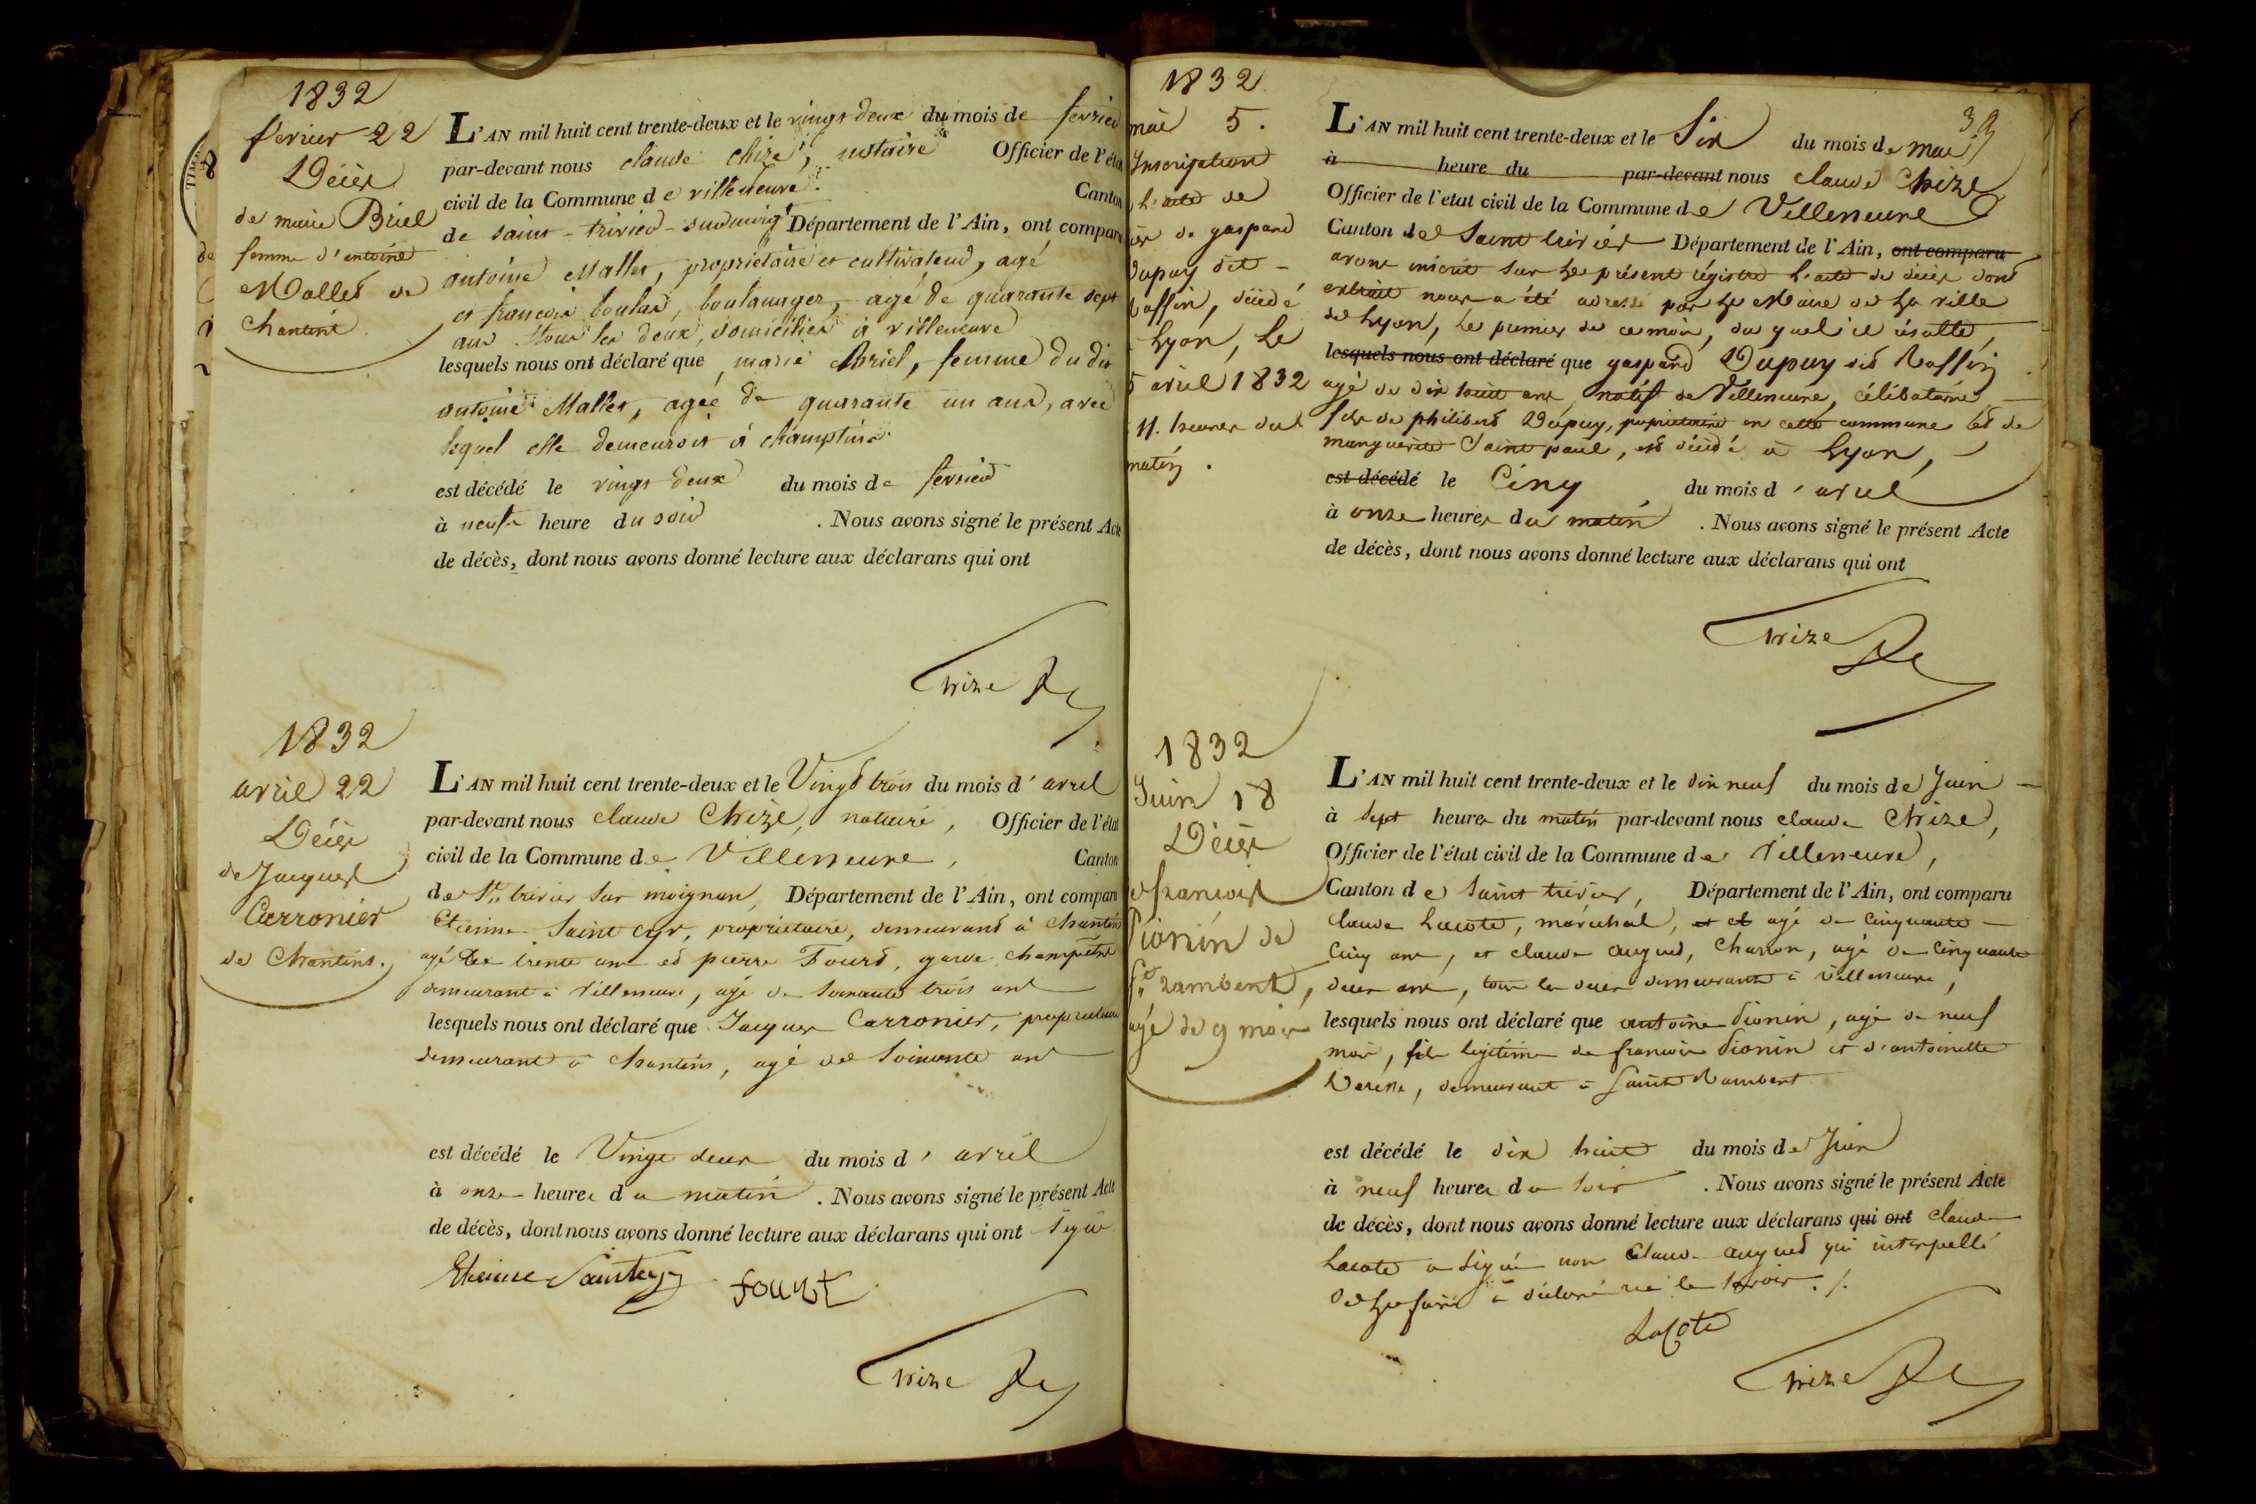 1832
fevrier 22
Décès
de marie Briel
femme d'antoine
Mallet de
Chantint
L'AN mil huit cent trente-deux et le vingt deux du mois de fevrier
par-devant nous claude chize, notaire Officier de l'état
civil de la Commune de villeneuve Canton
de saint-trivier-surmoigt Département de l'Ain, ont comparu
antoine Mallet, propriétaire et cultivateur, agé
et françois boulas, boulanger, agé de quarante sept
ans tous les deux, domiciliés à villeneuve
lesquels nous ont déclaré que marie Briel, femme du dit
antoine Mallet, agée de quarante un ans, avec
lequel elle demeuroit à champtins
est décédé le vingt deux du mois de fevrier
à neuf heure du soir . Nous avons signé le présent Acte
de décès, dont nous avons donné lecture aux déclarans qui ont
Chize
1832
avril 22
Décès
de Jacques
Carronier
de Chantins.
L'AN mil huit cent trente-deux et le Vingt trois du mois d'avril
par-devant nous claude Chize, notaire, Officier de l'état
civil de la Commune de Villeneuve, Canton
de St. trivier sur moignan, Département de l'Ain, ont comparu
Etienne Saint cyr, propriétaire, demeurant à Chantins
agé de trente ans et pierre Fourt, garde champêtre
demeurant à Villeneuve, agé de soixante trois ans
lesquels nous ont déclaré que Jacques Carronier, propriétaire
demeurant à Chantins, agé de soixante ans
est décédé le Vingt deux du mois d'avril
à onze heures du matin . Nous avons signé le présent Acte
de décès, dont nous avons donné lecture aux déclarans qui ont signé
Etienne Saintcyr fourt
Chize
1832
mai 5.
Inscription
l'acte de
de gaspard
Dupuy dit
Raffin, décédé
Lyon, le
5 avril 1832
11. heures du
matin.
39
L'AN mil huit cent trente-deux et le Six du mois de mai
à heure du par-devant nous claude Chize
Officier de l'etat civil de la Commune de Villeneuve
Canton de Saint trivier Département de l'Ain, ont comparu
avons inscrit sur le présent régistre l'acte de décès dont
extrait nous a été adressé par le Maire de la ville
de Lyon, le premier de ce mois, du quel il résulte,
lesquels nous ont déclaré que gaspard Dupuy dit Raffin
agé de dix huit ans, natif de Villeneuve, célibataire
fils de philibert Dupuy, propriétaire en cette commune et de
marguerite Saint paul, est décédé à Lyon,
est décédé le Cinq du mois d'avril
à onze heures du matin . Nous avons signé le présent Acte
de décès, dont nous avons donné lecture aux déclarans qui ont
Chize
1832
Juin 18
Décès
de francois
Dionin de
St. rambert,
agé de 9 mois
L'AN mil huit cent trente-deux et le dix neuf du mois de Juin
à sept heures du matin par-devant nous claude Chize,
Officier de l'état civil de la Commune de Villeneuve,
Canton de Saint trivier, Département de l'Ain, ont comparu
claude Lacote, maréchal, et et agé de cinquante
cinq ans, et claude augued, charron, agé de cinquante
deux ans, tous les deux demeurants à Villeneuve,
lesquels nous ont déclaré que antoine Dionin, agé de neuf
mois, fils légitime de francois Dionin et d'antoinette
demeurant à Saint Rambert
est décédé le dix huit du mois de Juin
à neuf heures du soir . Nous avons signé le présent Acte
de décès, dont nous avons donné lecture aux déclarans qui ont claude
Lacote a signé non claude augued qui interpellé
de le faire a déclaré ne le savoir ./.
LaCote
Chize